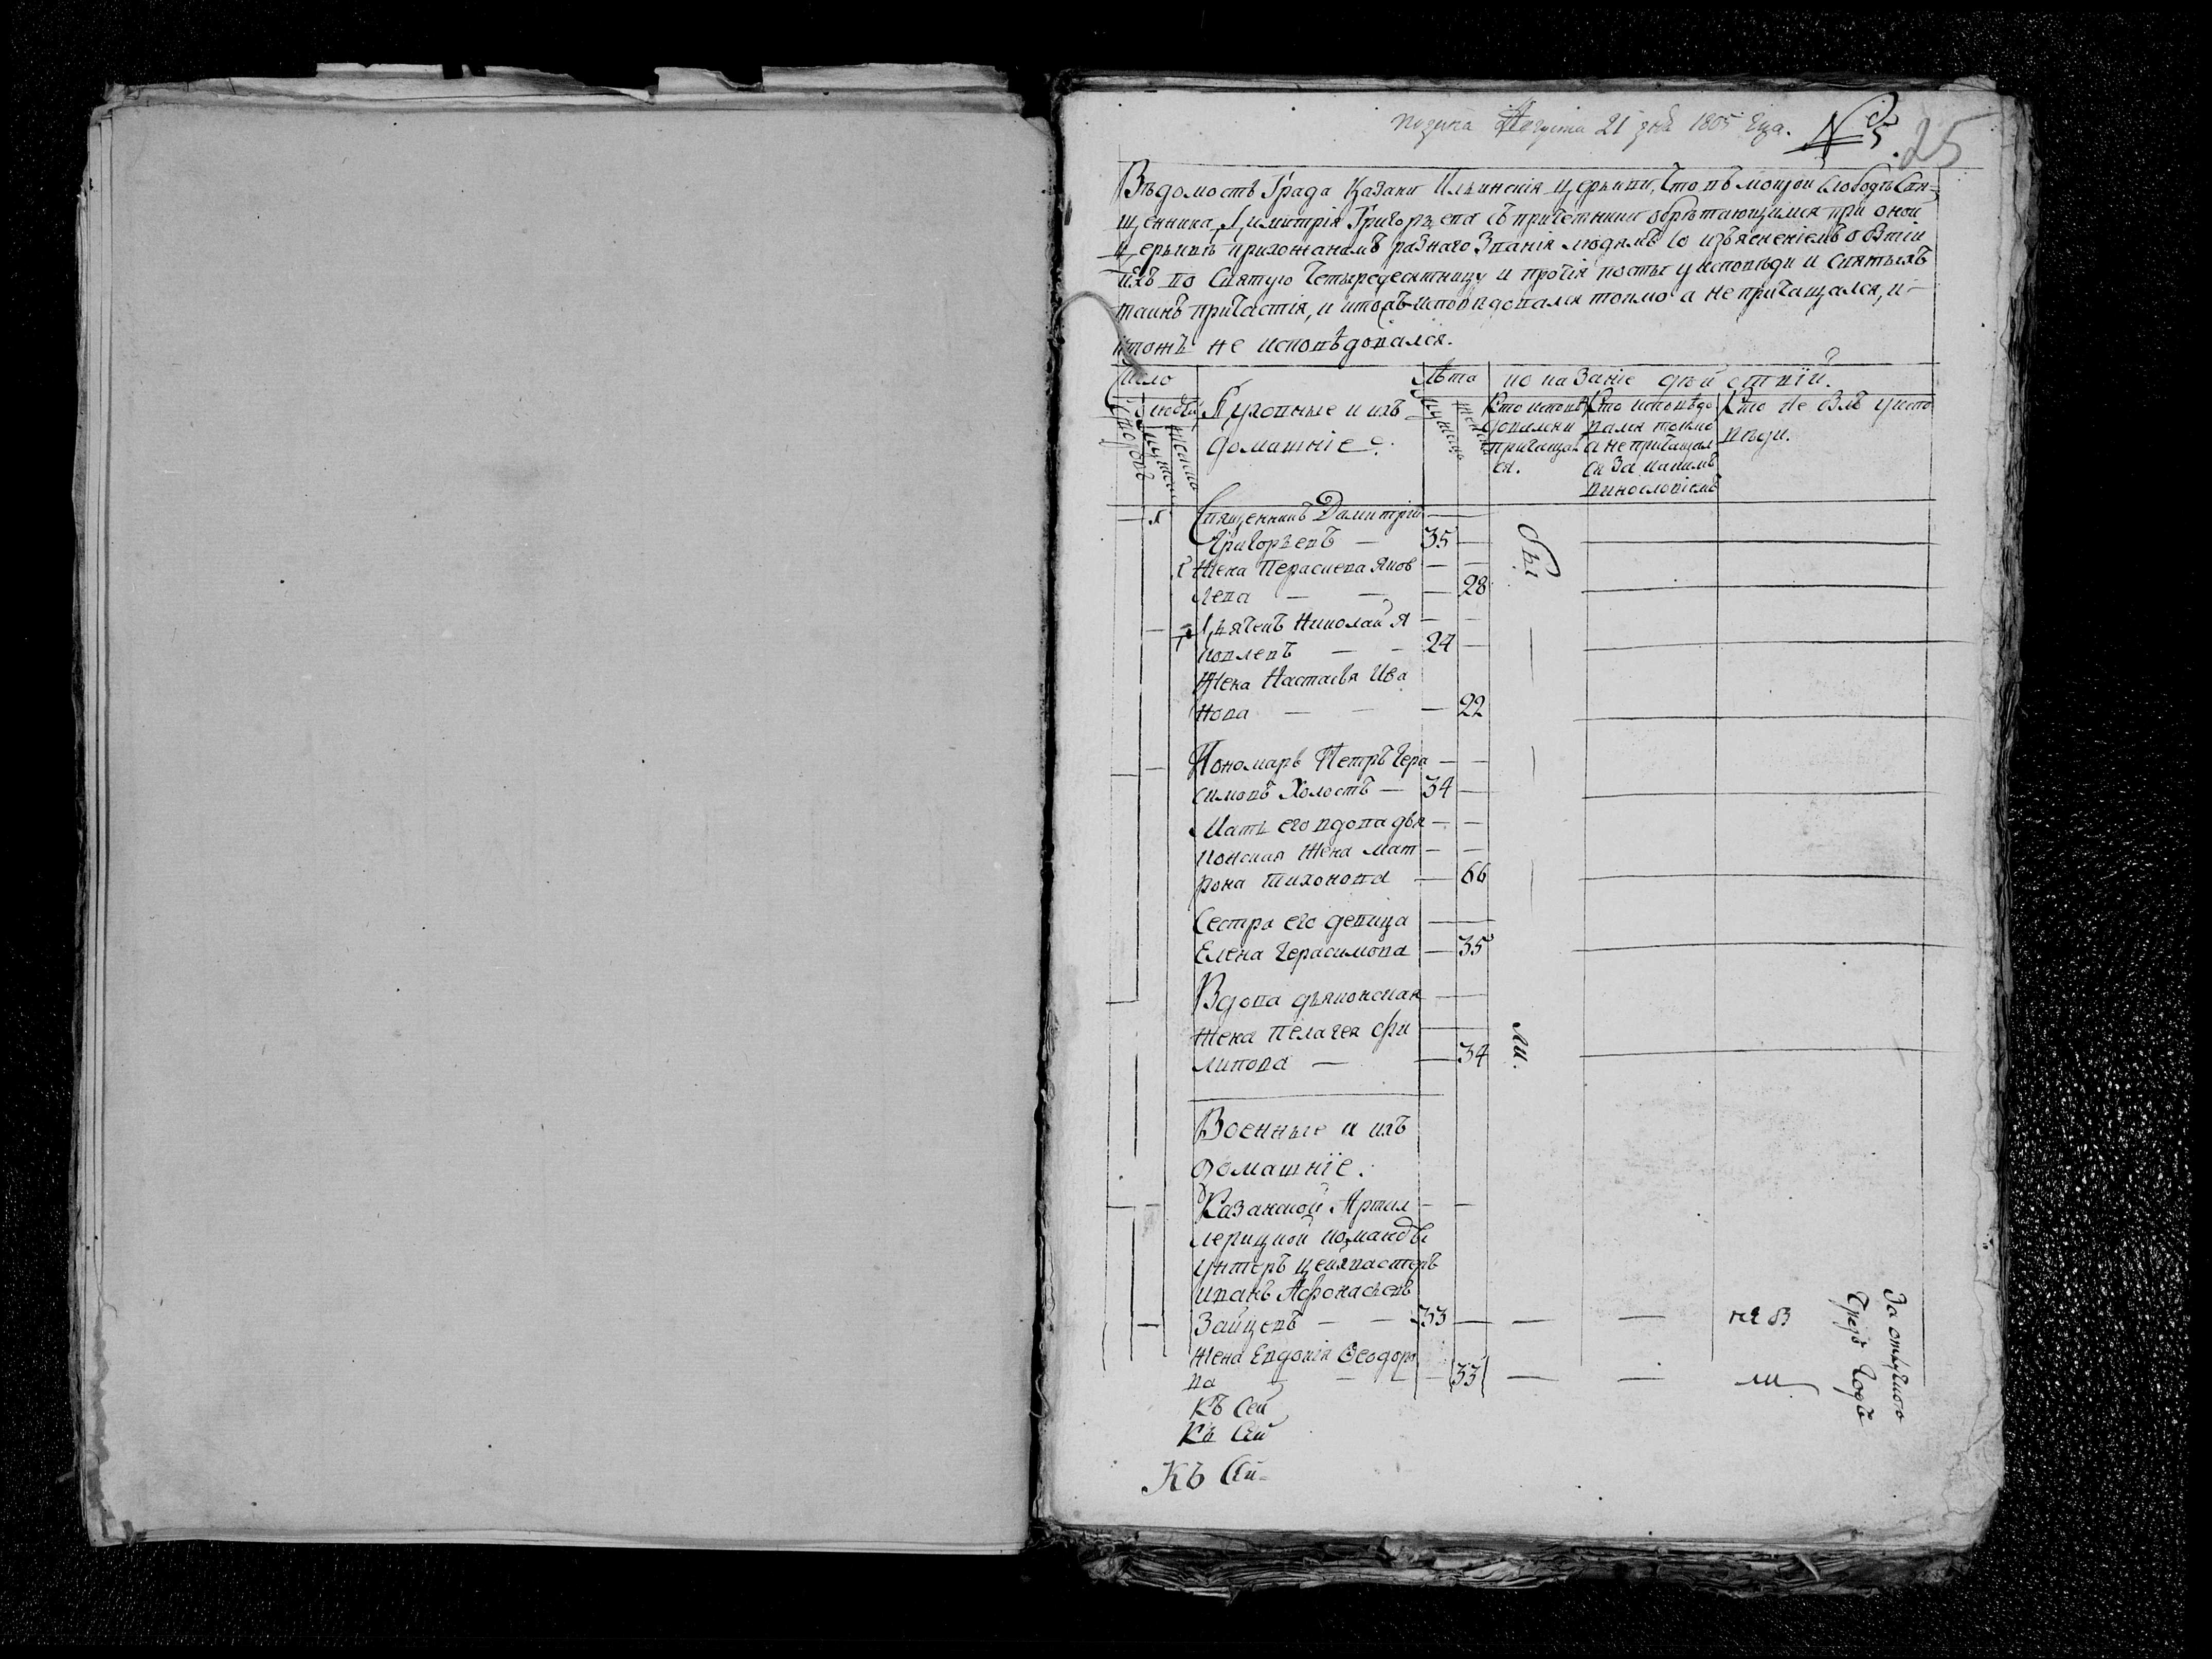 Августа 21 дня 1805 года. № 5. 25
Вѣдомость Града Казани Ильинскія церькви, что въ мокрой слободѣ Свя-
щенника Димитрія Григорьева съ причетники обрѣтающимся при оной
церьквѣ прихожанамъ разнаго Званія людямъ со изъясненіемъ о бытіи
ихъ во Святую Четыредесятницу и прочія посты у исповѣди и Святыхъ
таинъ причастія, и ктожъ исповѣдовался токмо а не причащался, и
ктожъ не исповѣдовался.
Число
Лѣта
показаніе дѣйствій.
Дворовъ
людей
мужска
женска
Духовные и ихъ
домашніе:
мужска
женска
Кто исповѣ
довался и
причащал
ся.
Кто исповѣдо
вался токмо
а не причащал
ся За какимъ
винословіемъ
Кто не былъ у испо
вѣди.
Священникъ Димитрій
Григорьевъ — 35
Жена Параскева Яков
лева — 28
Дьячекъ Николай Я
ковлевъ — 24
Жена Настасья Ива
нова — 22
Пономарь Петръ Гера
симовъ Холостъ — 34
Мать его вдова дья
конская Жена Мат
рона Тихонова — 66
Сестра его девица
Елена Герасимова — 35
Вдова дьяконская
Жена Пелагея Фи
липова — 34
бы
ли.
Военные и ихъ
домашніе:
Казанской Артил
лерицкой команды
унтеръ цейхвастеръ
Иванъ Афонасьевъ
Зайцевъ — 33 — — — не бы
Жена Евдокія Ѳеодоро
ва — 33 — — ли
За отлучкою
Чрезъ Годъ
Къ Сей
Къ Сей
Къ Сей